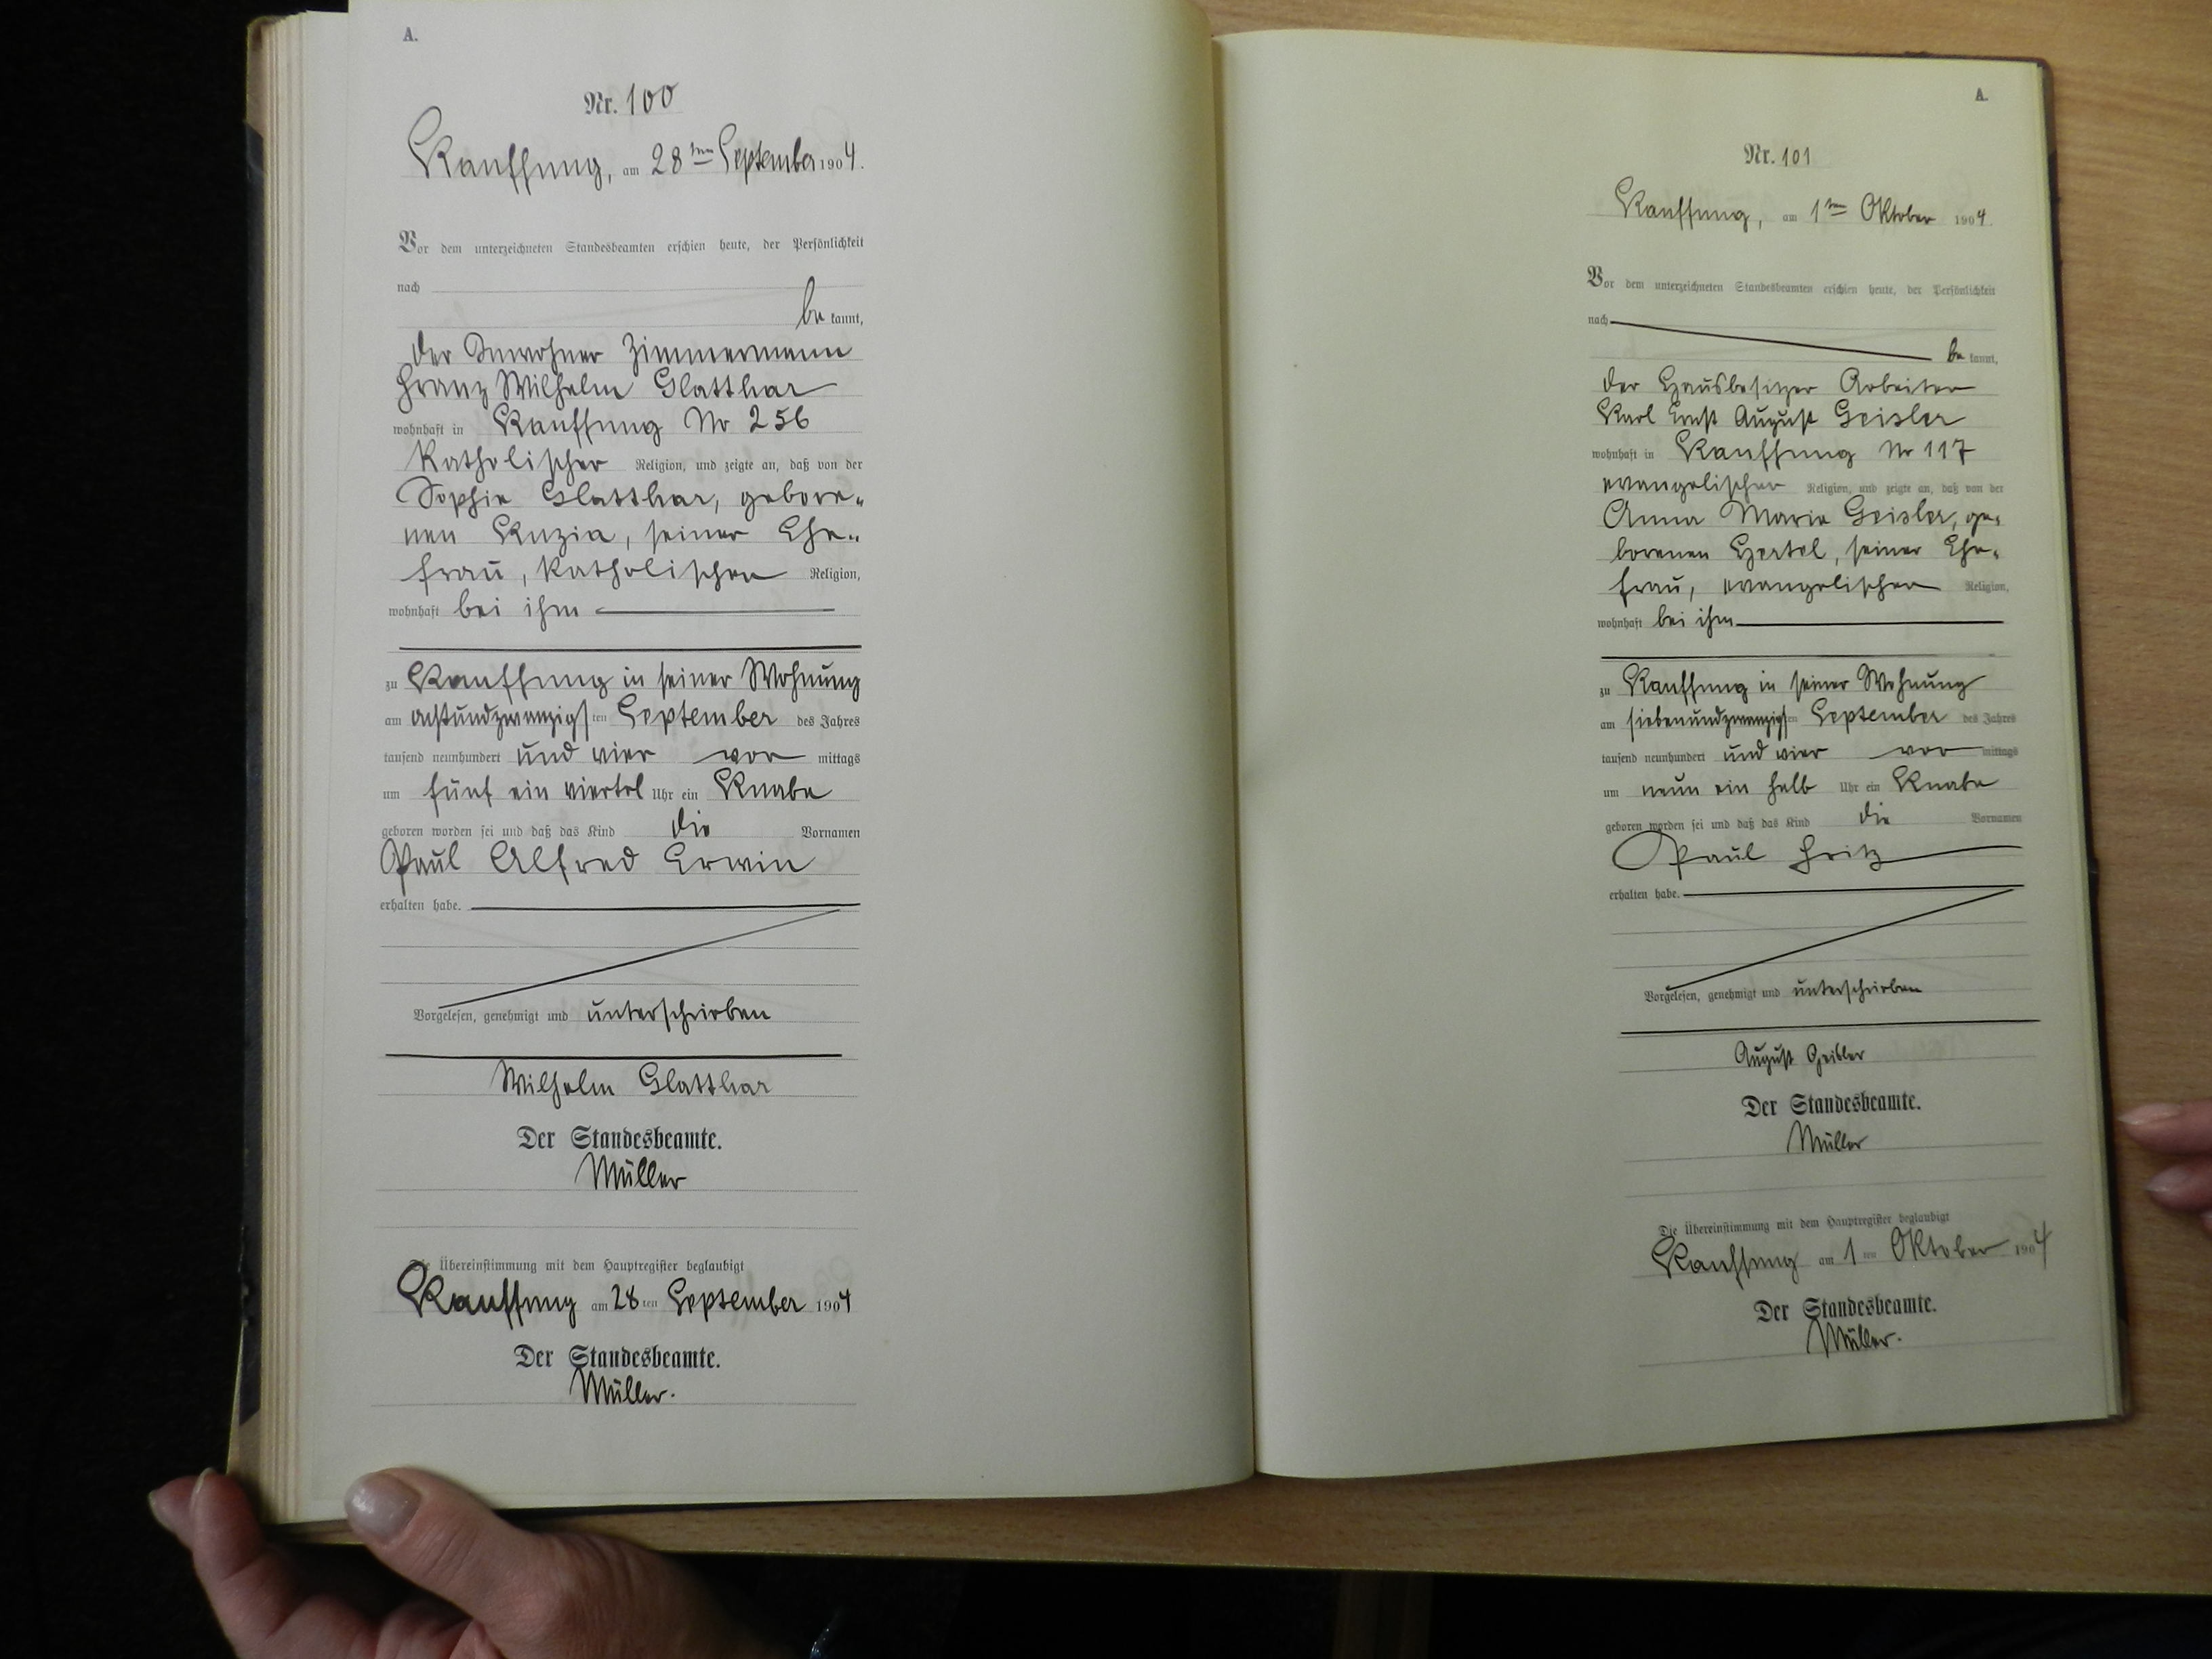 A.
Nr. 100
Kauffung, am 28ten September 1904.
Vor dem unterzeichneten Standesbeamten erschien heute, der Persönlichkeit
nach
be kannt,
der Inwohner Zimmermann
Franz Wilhelm Glatthar
wohnhaft in Kauffung Nr 256
katholischer Religion, und zeigte an, daß von der
Sophie Glatthar, gebore-
nen Kuzia, seiner Ehe-
frau, katholischen Religion,
wohnhaft bei ihm
zu Kauffung in seiner Wohnung
am achtundzwanzigsten September des Jahres
tausend neunhundert und vier vor mittags
um fünf ein viertel Uhr ein Knabe
geboren worden sei und daß das Kind die Vornamen
Paul Alfred Erwin
erhalten habe.
Vorgelesen, genehmigt und unterschrieben
Wilhelm Glatthar
Der Standesbeamte.
Müller
Die Übereinstimmung mit dem Hauptregister beglaubigt
Kauffung am 28ten September 1904
Der Standesbeamte.
Müller.
A.
Nr. 101
Kauffung, am 1ten Oktober 1904.
Vor dem unterzeichneten Standesbeamten erschien heute, der Persönlichkeit
nach
be kannt,
der Hausbesitzer Arbeiter
Karl Ernst August Geisler
wohnhaft in Kauffung Nr 117
evangelischer Religion, und zeigte an, daß von der
Anna Marie Geisler, ge-
borenen Hertel, seiner Ehe-
frau, evangelischen Religion,
wohnhaft bei ihm
zu Kauffung in seiner Wohnung
am siebenundzwanzigsten September des Jahres
tausend neunhundert und vier vor mittags
um neun ein halb Uhr ein Knabe
geboren worden sei und daß das Kind die Vornamen
Paul Fritz
erhalten habe.
Vorgelesen, genehmigt und unterschrieben
August Geisler
Der Standesbeamte.
Müller
Die Übereinstimmung mit dem Hauptregister beglaubigt
Kauffung am 1ten Oktober 1904
Der Standesbeamte.
Müller.